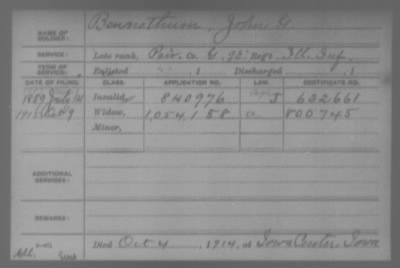 NAME OF SOLDIER: Bennethum, John G.
SERVICE: Late rank, Priv. Co. G, 93 Regt Ill. Inf.
TERM OF SERVICE: Enlisted , 1 Discharged , 1
DATE OF FILING. CLASS. APPLICATION NO. LAW. CERTIFICATE NO.
1890 July 14 Invalid, 840976 J 632661
Widow, 1,054,158 800745
Minor,
ADDITIONAL SERVICES:
REMARKS:
Died Oct 4, 1914, at Iowa Center Iowa